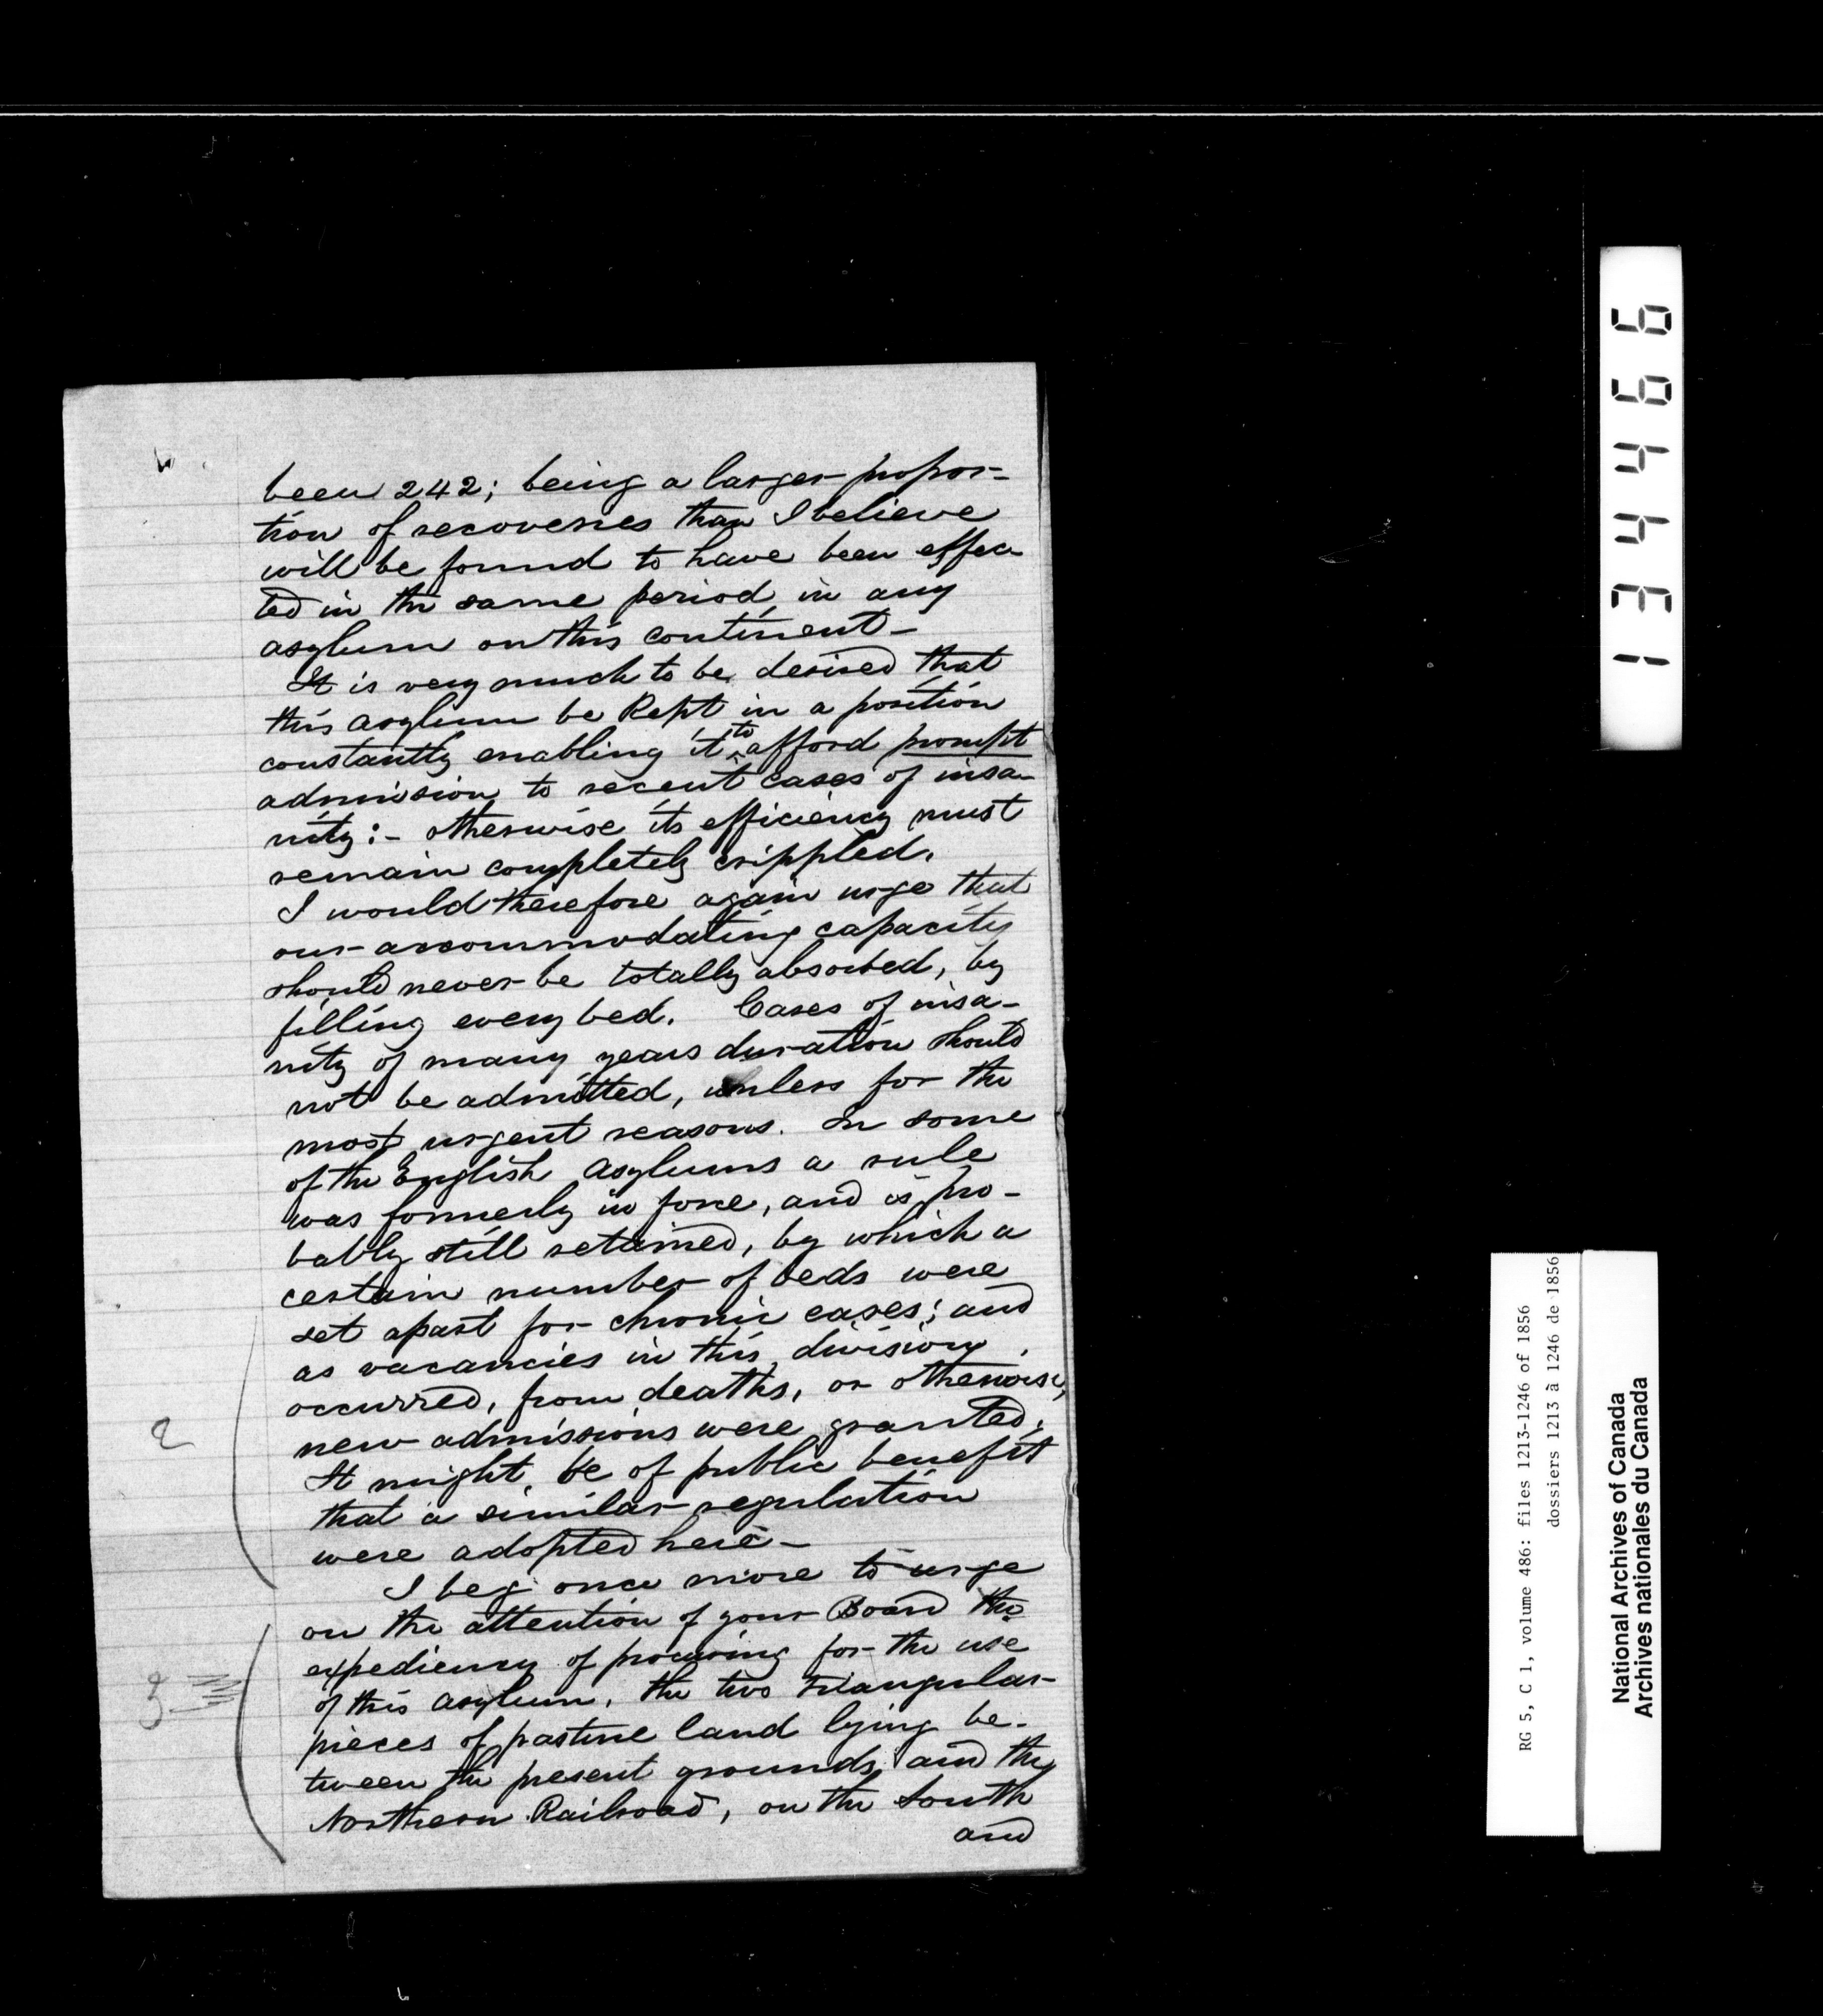 been 242; being a larger propor-
tion of recoveries than I believe
will be found to have been effec-
ted in the same period in any
asylum on this continent -
It is very much to be desired that
this asylum be Kept in a position
constantly enabling it to afford prompt
admission to recent cases of insa-
nity :- otherwise its efficiency must
remain completely crippled.
I would therefore again urge that
our accommodating capacity
should never be totally absorbed, by
filling every bed. Cases of insa-
nity of many years duration should
not be admitted, unless for the
most urgent reasons. In some
of the English Asylums a rule
was formerly in force, and is pro-
bably still retained, by which a
certain number of beds were
set apart for chronic cases; and
as vacancies in this division
occurred, from deaths, or otherwise,
new admissions were granted.
It might be of public benefit
that a similar regulation
were adopted here -
I beg once more to urge
on the attention of your Board the
expediency of procuring for the use
of this asylum, the two triangular
pieces of pasture land lying be-
tween the present grounds, and the
Northern Railroad, on the South
and
2
3
134466
RG 5, C 1, volume 486: files 1213-1246 of 1856
dossiers 1213 à 1246 de 1856
National Archives of Canada
Archives nationales du Canada